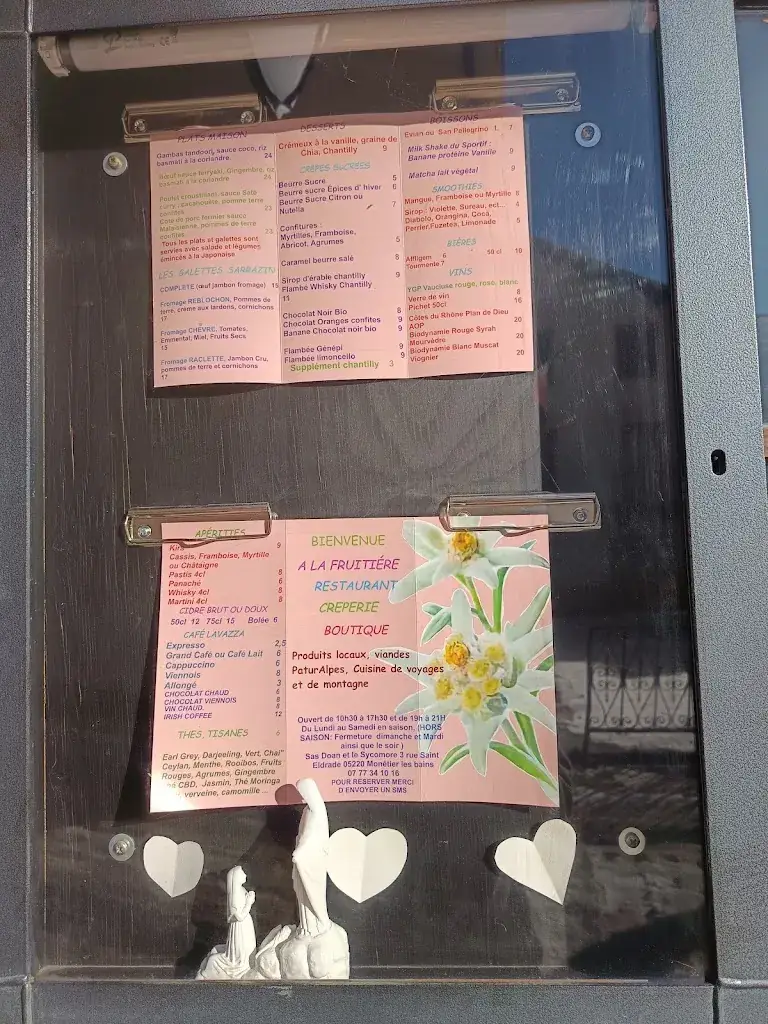 PLATS MAISON
Gambas tandoori, sauce coco, riz
basmati à la coriandre. 24
Bœuf sauce terryaki, Gingembre, riz
basmati à la coriandre. 24
Poulet croustillant, sauce Saté
curry, cacahouète, pomme terre
confites 23
Côte de porc fermier sauce
Malaisienne, pommes de terre
confites 23
Tous les plats et galettes sont
servies avec salade et légumes
émincés à la Japonaise
LES GALETTES SARRAZIN
COMPLETE (œuf jambon fromage) 15
Fromage REBLOCHON, Pommes de
terre, crème aux lardons, cornichons
17
Fromage CHÈVRE, Tomates,
Emmental, Miel, Fruits Secs
15
Fromage RACLETTE, Jambon Cru,
pommes de terre et cornichons
17
DESSERTS
Crèmeux à la vanille, graine de
Chia, Chantilly 9
CREPES SUCREES
Beurre Sucre 5
Beurre sucre Épices d' hiver 6
Beurre Sucre Citron ou
Nutella 7
Confitures :
Myrtilles, Framboise,
Abricot, Agrumes 5
Caramel beurre salé 8
Sirop d'érable chantilly 9
Flambé Whisky Chantilly
11
Chocolat Noir Bio 8
Chocolat Oranges confites 9
Banane Chocolat noir bio 9
Flambée Génépi 9
Flambée limoncello 9
Supplément chantilly 3
BOISSONS
Evian ou San Pellegrino 1. 7
Milk Shake du Sportif :
Banane protéine Vanille 9
Matcha lait végétal 9
SMOOTHIES
Mangue, Framboise ou Myrtille 8
Sirop: Violette, Sureau, ect... 4
Diabolo, Orangina, Coca,
Perrier,Fuzetea, Limonade 5
BIÈRES
Affligem 6 50 cl 10
Tourmente 7
VINS
VGP Vaucluse rouge, rosé, blanc
Verre de vin 6
Pichet 50cl 16
Côtes du Rhône Plan de Dieu
AOP 20
Biodynamie Rouge Syrah
Mourvèdre 20
Biodynamie Blanc Muscat
Viognier 20
APÉRITIFS
Kirs 9
Cassis, Framboise, Myrtille
ou Châtaigne
Pastis 4cl 8
Panaché 6
Whisky 4cl 8
Martini 4cl 8
CIDRE BRUT OU DOUX
50cl 12 75cl 15 Bolée 6
CAFÉ LAVAZZA
Expresso 2,5
Grand Café ou Café Lait 6
Cappuccino 6
Viennois 8
Allongé 3
CHOCOLAT CHAUD 6
CHOCOLAT VIENNOIS 8
VIN CHAUD. 8
IRISH COFFEE 12
THES, TISANES 6
Earl Grey, Darjeeling, Vert, Chaï"
Ceylan, Menthe, Rooibos, Fruits
Rouges, Agrumes, Gingembre
CBD, Jasmin, Thé Moringa
verveine, camomille ...
BIENVENUE
A LA FRUITIÉRE
RESTAURANT
CREPERIE
BOUTIQUE
Produits locaux, viandes
PaturAlpes, Cuisine de voyages
et de montagne
Ouvert de 10h30 à 17h30 et de 19h à 21H
Du Lundi au Samedi en saison, (HORS
SAISON: Fermeture dimanche et Mardi
ainsi que le soir )
Sas Doan et le Sycomore 3 rue Saint
Eldrade 05220 Monêtier les bains
07 77 34 10 16
POUR RESERVER MERCI
D'ENVOYER UN SMS